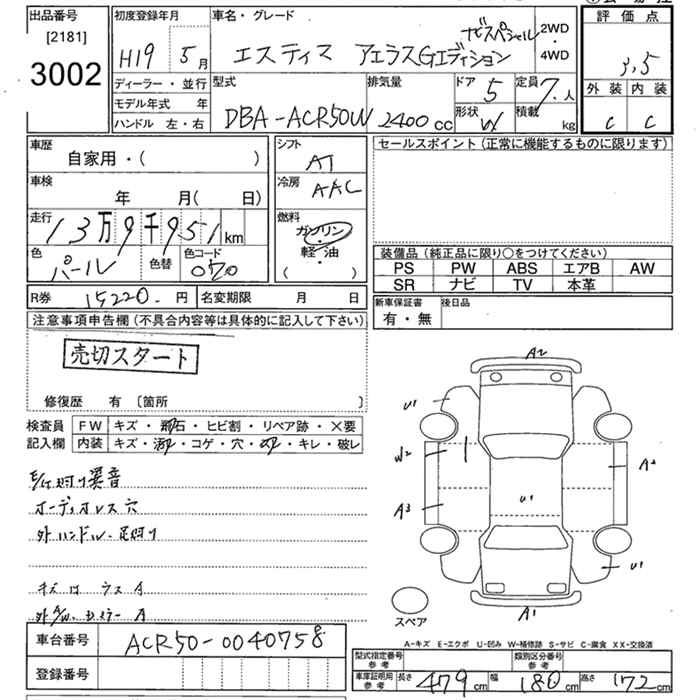 出品番号
[2181]
3002
初度登録年月
H19 5月
車名・グレード
ナビスペシャル
エスティマ アエラスGエディション
2WD
4WD
評価点
3.5
外装 内装
C C
ディーラー・並行
モデル年式 年
ハンドル 左・右
型式
DBA-ACR50W
排気量
2400 cc
ドア
5
定員
7人
形状
W
積載
kg
車歴
自家用・( )
車検
年 月( 日)
走行
13万9千951km
色
パール
色替
色コード
070
シフト
AT
冷房
AAC
燃料
ガソリン
軽・油
( )
セールスポイント(正常に機能するものに限ります)
装備品(純正品に限り○をつけてください)
PS PW ABS エアB AW
SR ナビ TV 本革
R券 15220.円 名変期限 月 日
新車保証書
有・無
後日品
注意事項申告欄(不具合内容等は具体的に記入して下さい)
売切スタート
修復歴 有 [箇所 ]
検査員
記入欄
FW キズ・飛石・ヒビ割・リペア跡・×要
内装 キズ・汚れ・コゲ・穴・スレ・キレ・破レ
異音
オーディオレス 穴
外ハンドル
キズ
A2
U1
W2
A3
U1
A2
U1
A1
スペア
A-キズ E-エクボ U-凹み W-補修跡 S-サビ C-腐食 XX-交換済
車台番号 ACR50-0040758
登録番号
型式指定番号
参考
類別区分番号
参考
車庫証明用
参考
長さ 479cm 幅 180cm 高さ 172cm